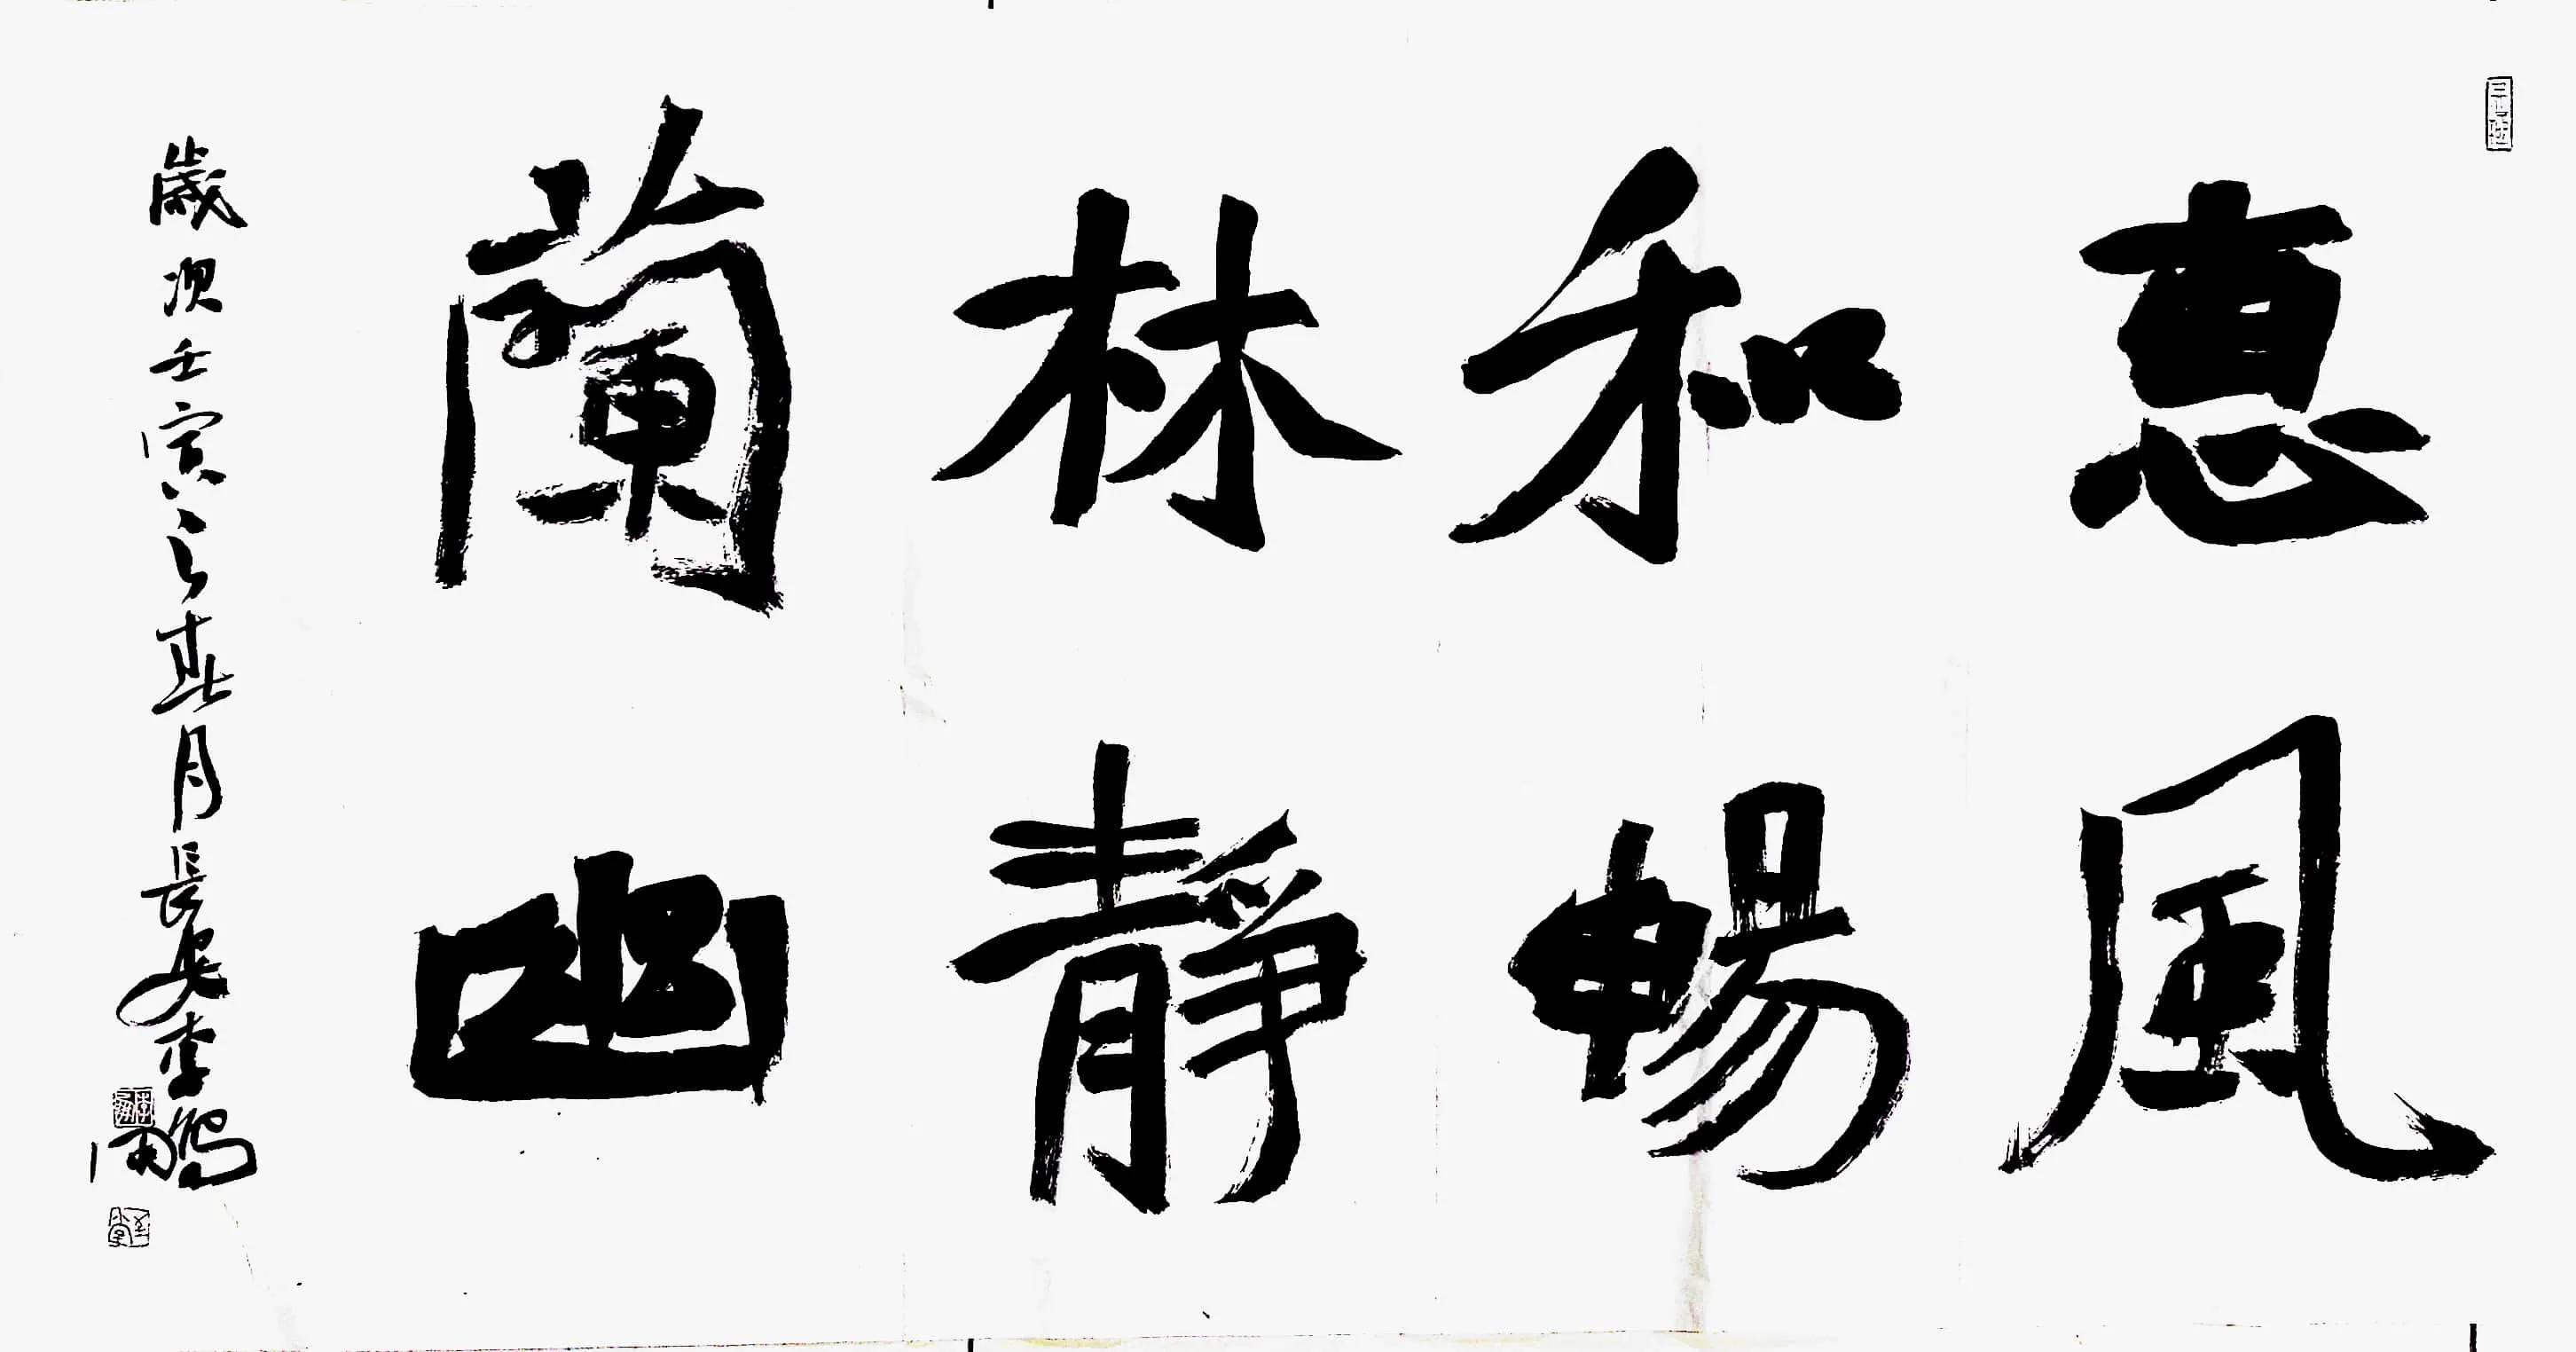 惠風
和暢
林靜
蘭幽
歲次壬寅之春月長安李鵬